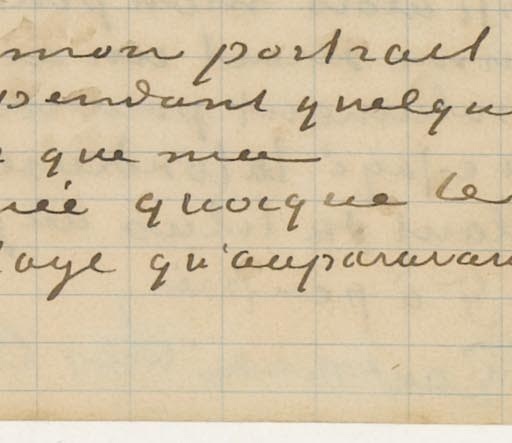 mon portrait
pendant quelqu
que me
quoique le
qu'auparavan